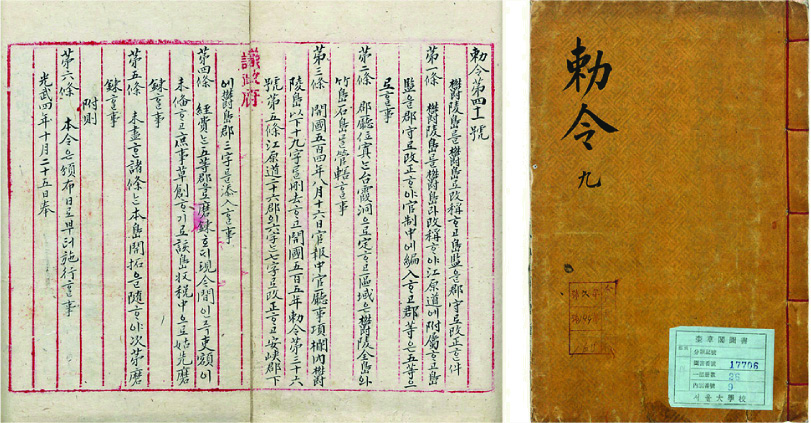 勅令第四十一號
欝陵島를欝島로改稱ᄒᆞ고島監을郡守로改正ᄒᆞᆫ件
第一條 欝陵島를欝島라改稱ᄒᆞ야江原道에附屬ᄒᆞ고島
監을郡守로改正ᄒᆞ야官制中에編入ᄒᆞ고郡等은五等으
로ᄒᆞᆯ事
第二條 郡廳位寘는台霞洞으로定ᄒᆞ고區域은欝陵全島와
竹島石島를管轄ᄒᆞᆯ事
第三條 開國五百四年八月十六日官報中官廳事項欄內欝
陵島以下十九字를刪去ᄒᆞ고開國五百五年勅令第三十六
號第五條江原道二十六郡의六字는七字로改正ᄒᆞ고安峽郡下
議政府
에欝島郡三字를添入ᄒᆞᆯ事
第四條 經費는五等郡으로磨鍊호ᄃᆡ現今間인즉吏額이
未備ᄒᆞ고庶事草創ᄒᆞ기로該島收稅中으로姑先磨
鍊ᄒᆞᆯ事
第五條 未盡ᄒᆞᆫ諸條는本島開拓을隨ᄒᆞ야次第磨
鍊ᄒᆞᆯ事
附則
第六條 本令은頒布日로부터施行ᄒᆞᆯ事
光武四年十月二十五日奉
勅令 九
奎章閣圖書
圖書番號 17706
9
서울大學校